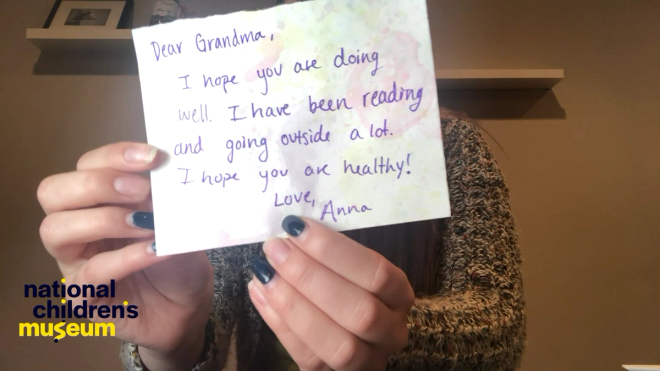 Dear Grandma,
I hope you are doing
well. I have been reading
and going outside a lot.
I hope you are healthy!
Love,
Anna
national
children's
museum